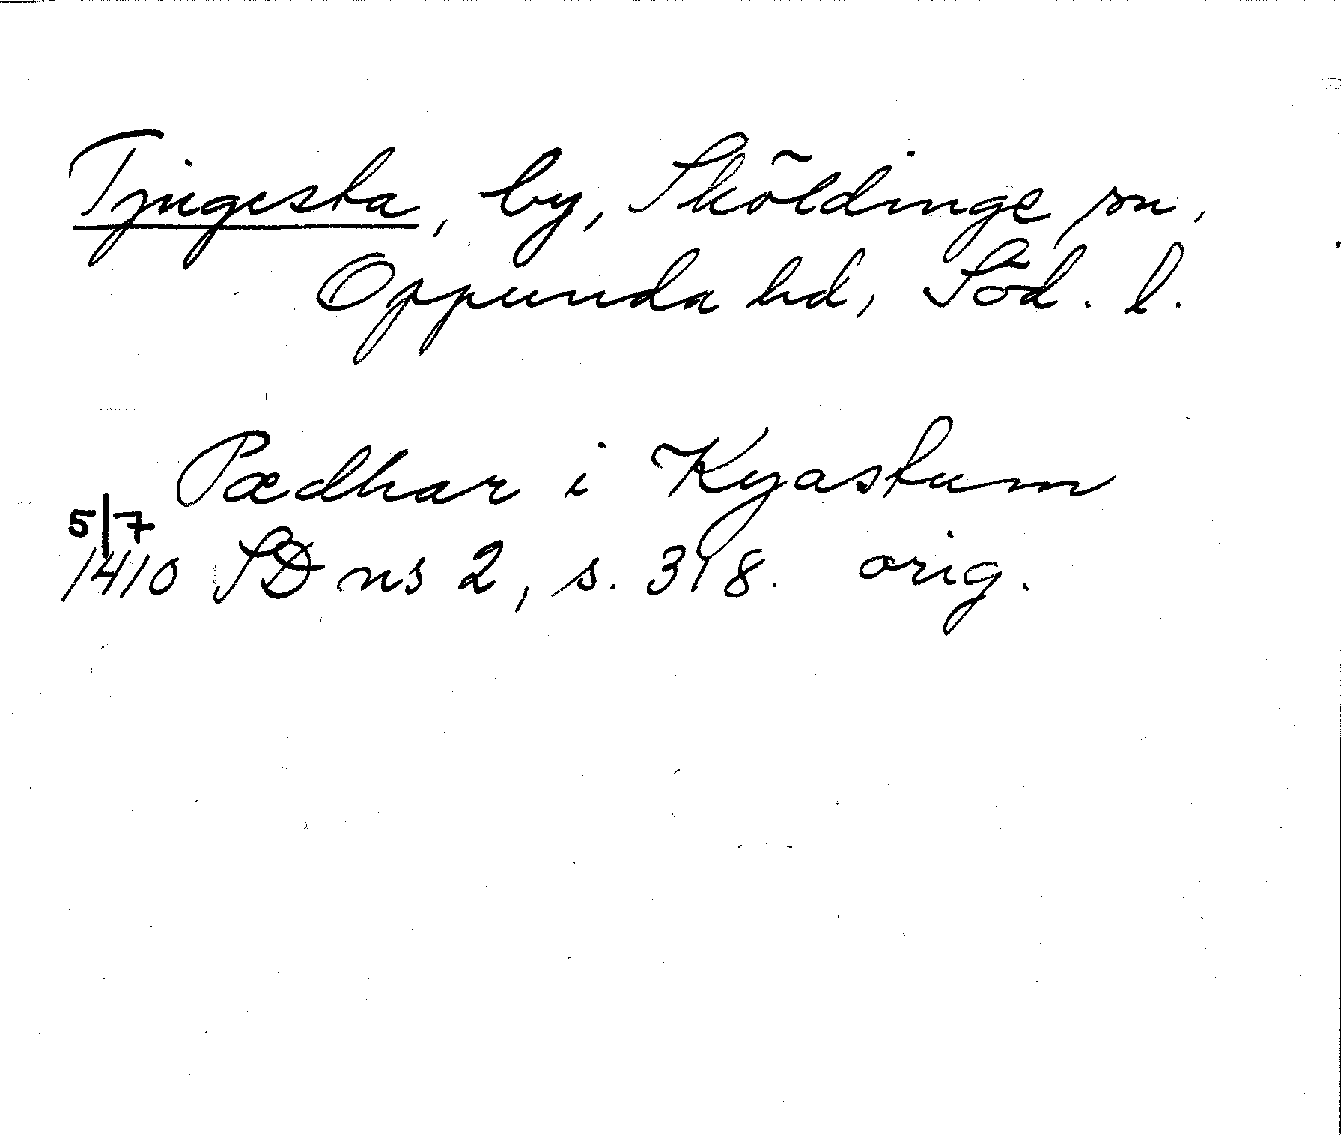 Tjugesta, by, Sköldinge sn,
Oppunda hd, Söd. l.
Pædhar i Kyastum
5/7
1410 SD ns 2, s. 318. orig.